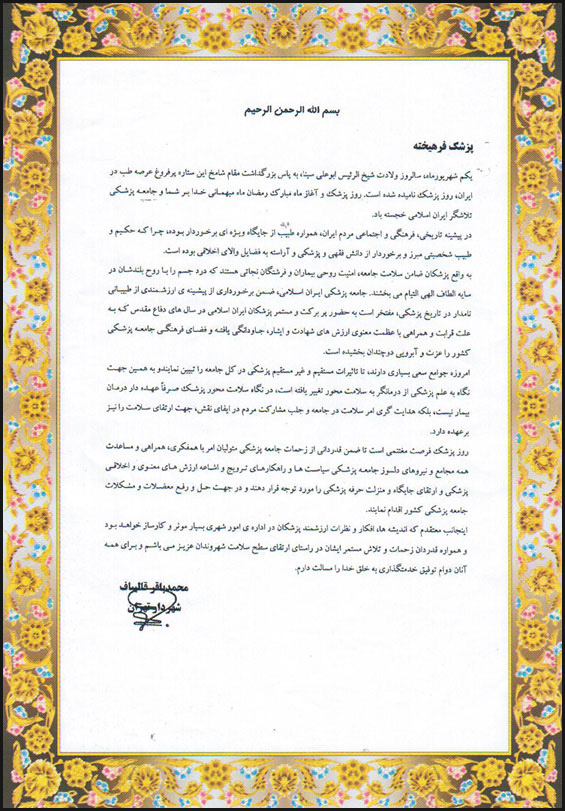 بسم الله الرحمن الرحیم
پزشک فرهیخته
یکم شهریورماه، سالروز ولادت شیخ الرئیس ابوعلی سینا، به پاس بزرگداشت مقام شامخ این ستاره پرفروغ عرصه طب در
ایران، روز پزشک نامیده شده است. روز پزشک و آغاز ماه مبارک رمضان ماه میهمانی خدا بر شما و جامعه پزشکی
تلاشگر ایران اسلامی خجسته باد.
در پیشینه تاریخی، فرهنگی و اجتماعی مردم ایران، همواره طبیب از جایگاه ویژه ای برخوردار بوده، چرا که حکیم و
طبیب شخصیتی مبرز و برخوردار از دانش فقهی و پزشکی و آراسته به فضایل والای اخلاقی بوده است.
به واقع پزشکان ضامن سلامت جامعه، امنیت روحی بیماران و فرشتگان نجاتی هستند که درد جسم را با روح بلندشان در
سایه الطاف الهی التیام می بخشند. جامعه پزشکی ایران اسلامی، ضمن برخورداری از پیشینه ی ارزشمندی از طبیبانی
نامدار در تاریخ پزشکی، مفتخر است به حضور پر برکت و مستمر پزشکان ایران اسلامی در سال های دفاع مقدس که به
علت قرابت و همراهی با عظمت معنوی ارزش های شهادت و ایثار، جاودانگی یافته و فضای فرهنگی جامعه پزشکی
کشور را عزت و آبرویی دوچندان بخشیده است.
امروزه جوامع سعی بسیاری دارند، تا تاثیرات مستقیم و غیر مستقیم پزشکی در کل جامعه را تبیین نمایندو به همین جهت
نگاه به علم پزشکی از درمانگر به سلامت محور تغییر یافته است، در نگاه سلامت محور پزشک صرفاً عهده دار درمان
بیمار نیست، بلکه هدایت گری امر سلامت در جامعه و جلب مشارکت مردم در ایفای نقش، جهت ارتقای سلامت را نیز
برعهده دارد.
روز پزشک فرصت مغتنمی است تا ضمن قدردانی از زحمات جامعه پزشکی متولیان امر با همفکری، همراهی و مساعدت
همه مجامع و نیروهای دلسوز جامعه پزشکی سیاست ها و راهکارهای ترویج و اشاعه ارزش های معنوی و اخلاقی
پزشکی و ارتقای جایگاه و منزلت حرفه پزشکی را مورد توجه قرار دهند و در جهت حل و رفع معضلات و مشکلات
جامعه پزشکی کشور اقدام نمایند.
اینجانب معتقدم که اندیشه ها، افکار و نظرات ارزشمند پزشکان در اداره ی امور شهری بسیار موثر و کارساز خواهد بود
و همواره قدردان زحمات و تلاش مستمر ایشان در راستای ارتقای سطح سلامت شهروندان عزیز می باشم و برای همه
آنان دوام توفیق خدمتگذاری به خلق خدا را مسالت دارم.
محمدباقر قالیباف
شهردار تهران